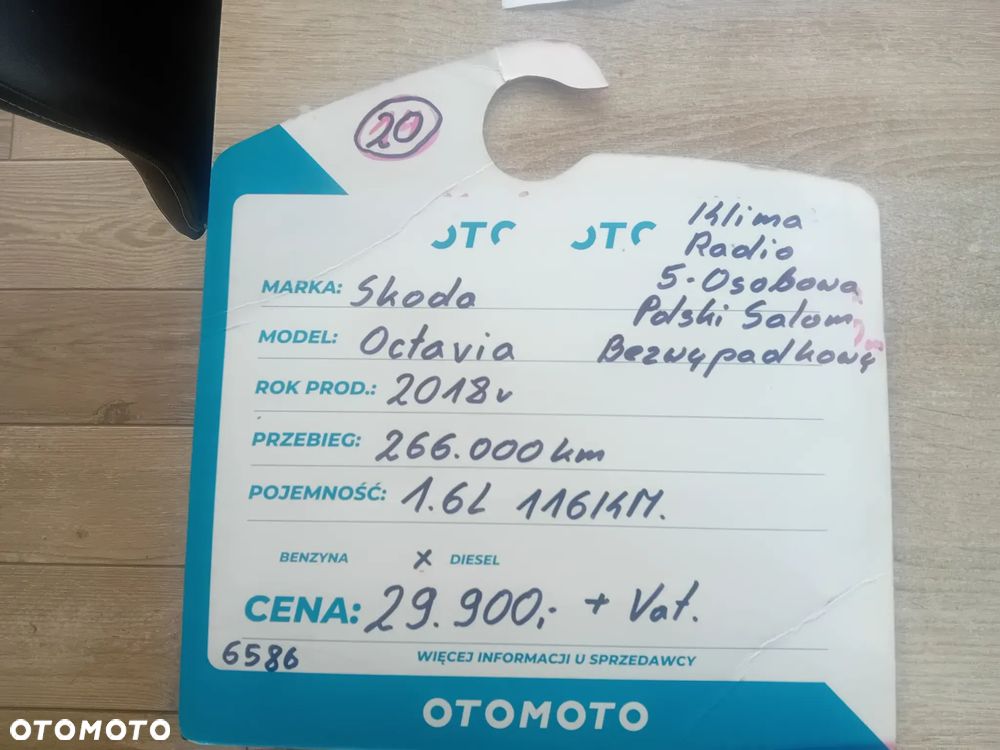 20
OTO OTO
Klima
Radio
5-Osobowa
Polski Salom
Bezwypadkowy
MARKA: Skoda
MODEL: Octavia
ROK PROD.: 2018r
PRZEBIEG: 266.000km
POJEMNOŚĆ: 1.6L 116KM.
BENZYNA x DIESEL
CENA: 29.900,- + Vat.
6586
WIĘCEJ INFORMACJI U SPRZEDAWCY
OTOMOTO
OTOMOTO